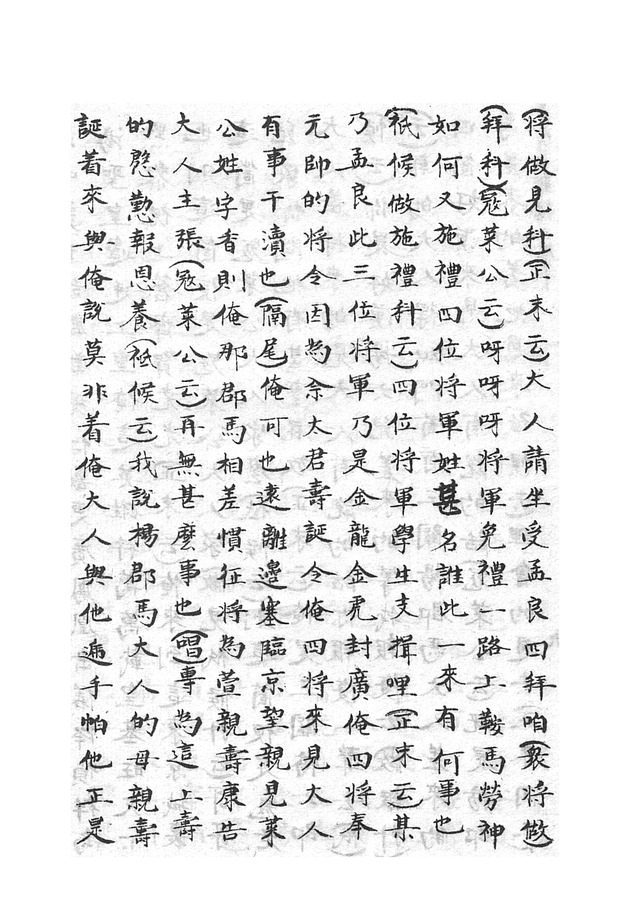 (將做見科)(正末云)大人請坐受孟良四拜咱(衆將做
拜科)(冦萊公云)呀呀呀將軍免禮一路上鞍馬勞神
如何又施禮四位將軍姓甚名誰此一來有何事也
(祇候做施禮科云)四位將軍學生支揖哩(正末云)某
乃孟良此三位將軍乃是金龍金虎封廣俺四將奉
元帥的將令因為佘太君壽誕令俺四將來見大人
有事干瀆也(隔尾)俺可也遠離邊塞臨京輦親見萊
公姓字香則俺那郡馬相差慣征將為萱親壽康告
大人主張(冦萊公云)再無甚麽事也(唱)專為這上壽
的慇懃報恩養(祇候云)我說楊郡馬大人的母親壽
誕着來與俺說莫非着俺大人與他遞手帕他正是